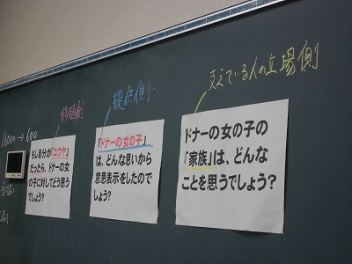 支えている人の立場側
提供側
移植側
14000 → 600
もし自分が「ユウヤ」
だったら、ドナーの女
の子に対してどう思う
でしょう?
「ドナーの女の子」
は、どんな思いから
意思表示をしたので
しょう?
ドナーの女の子の
「家族」は、どんな
ことを思うでしょう?